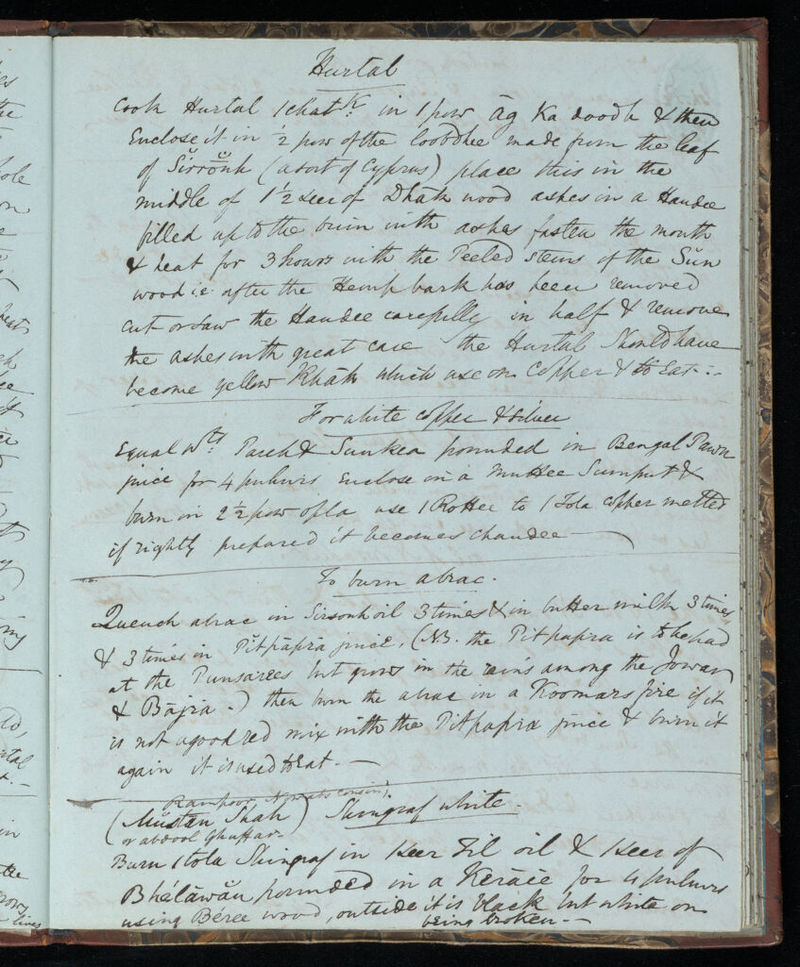 Hurtal
Cook Hurtal 1 chatk in 1 pow Āg Ka doodh & then
Enclose it in ½ pow of the loobdhee made from the leaf
of Sirrōnh (a sort of Cyprus) place this in the
middle of 1½ seer of Dhāk wood ashes in a Handee
filled up to the brim with ashes fasten the mouth
& heat for 3 hours with the Peeled stems of the Sŭn
wood ie after the Hemp bark has been removed
cut or saw the Handee carefully in half & remove
the ashes with great care the Hurtal Should have
become yellow Khāk which use on Copper & to Eat :-
For white copper & silver
Equal wts Pareh & Sunkea pounded in Bengal Pawn
juice for 4 puhurs Enclose in a Muttee Sumput &
burn in 2½ pow opla use 1 Rottee to 1 Tola copper melted
if rightly prepared it becomes Chandee
To burn abrac.
Quench abrac in Sirsonh oil 3 times & in butter milk 3 times
& 3 times in Pĭtpāpra juice, (NB. the Pitpapra is to be had
at the Punsarees but grows in the rains among the Jowar
& Bājra -) then burn the abrac in a Koomars fire if it
is not a good red mix with the Pitpapra juice & burn it
again it is used to Eat. -
Rampoor Nawabs cousin)
(Mŭstan Shah) Shingraf white.
or abdool Ghuffar
Burn 1 tola Shingraf in 1 seer Til oil & 1 seer of
Bhĕlāwăn pounded in a Keraée for 4 puhurs
using Béree wood, outside it is black but white on
being broken -